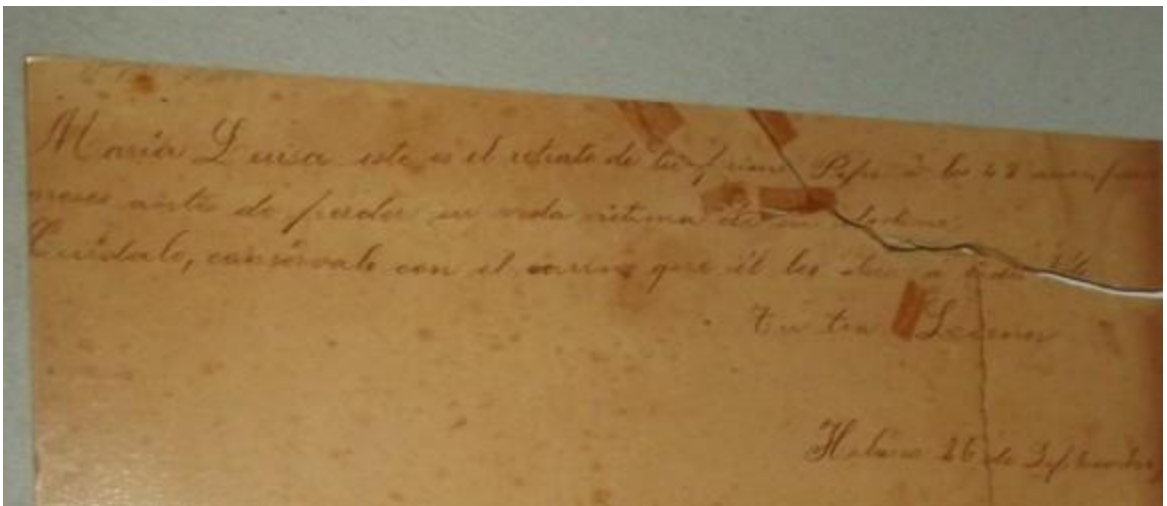 María Luisa este es el retrato de tu primo Pepe á los 42 años
meses antes de perder su vida victima de su
Cuídalo, consérvalo con el cariño que él les
Tu tia
Habana 26 de Septiembre